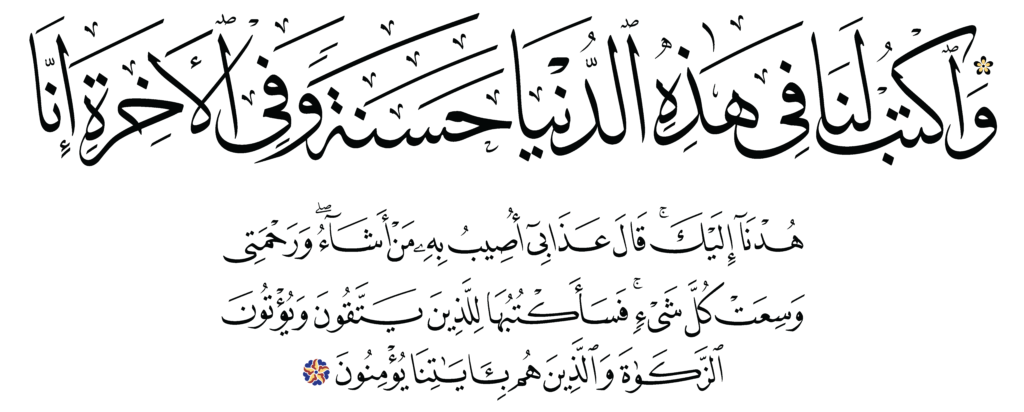 وَٱكْتُبْ لَنَا فِى هَٰذِهِ ٱلدُّنْيَا حَسَنَةً وَفِى ٱلْأَخِرَةِ إِنَّا
هُدْنَآ إِلَيْكَ ۚ قَالَ عَذَابِىٓ أُصِيبُ بِهِۦ مَنْ أَشَآءُ ۖ وَرَحْمَتِى
وَسِعَتْ كُلَّ شَىْءٍ ۚ فَسَأَكْتُبُهَا لِلَّذِينَ يَتَّقُونَ وَيُؤْتُونَ
ٱلزَّكَوٰةَ وَٱلَّذِينَ هُم بِـَٔايَٰتِنَا يُؤْمِنُونَ